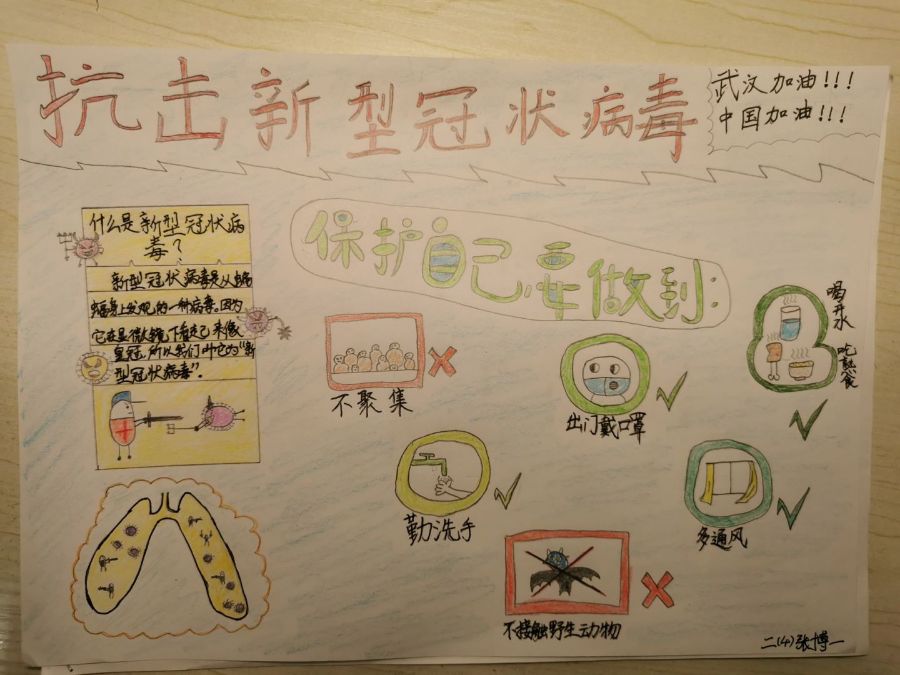 抗击新型冠状病毒
武汉加油!!!
中国加油!!!
什么是新型冠状病
毒?
新型冠状病毒是从蝙
蝠身上发现的一种病毒。因为
它在显微镜下看起来像
皇冠,所以我们叫它为“新
型冠状病毒”.
保护自己,要做到:
不聚集
出门戴口罩
喝开水
吃熟食
勤洗手
多通风
不接触野生动物
二(4)张博一